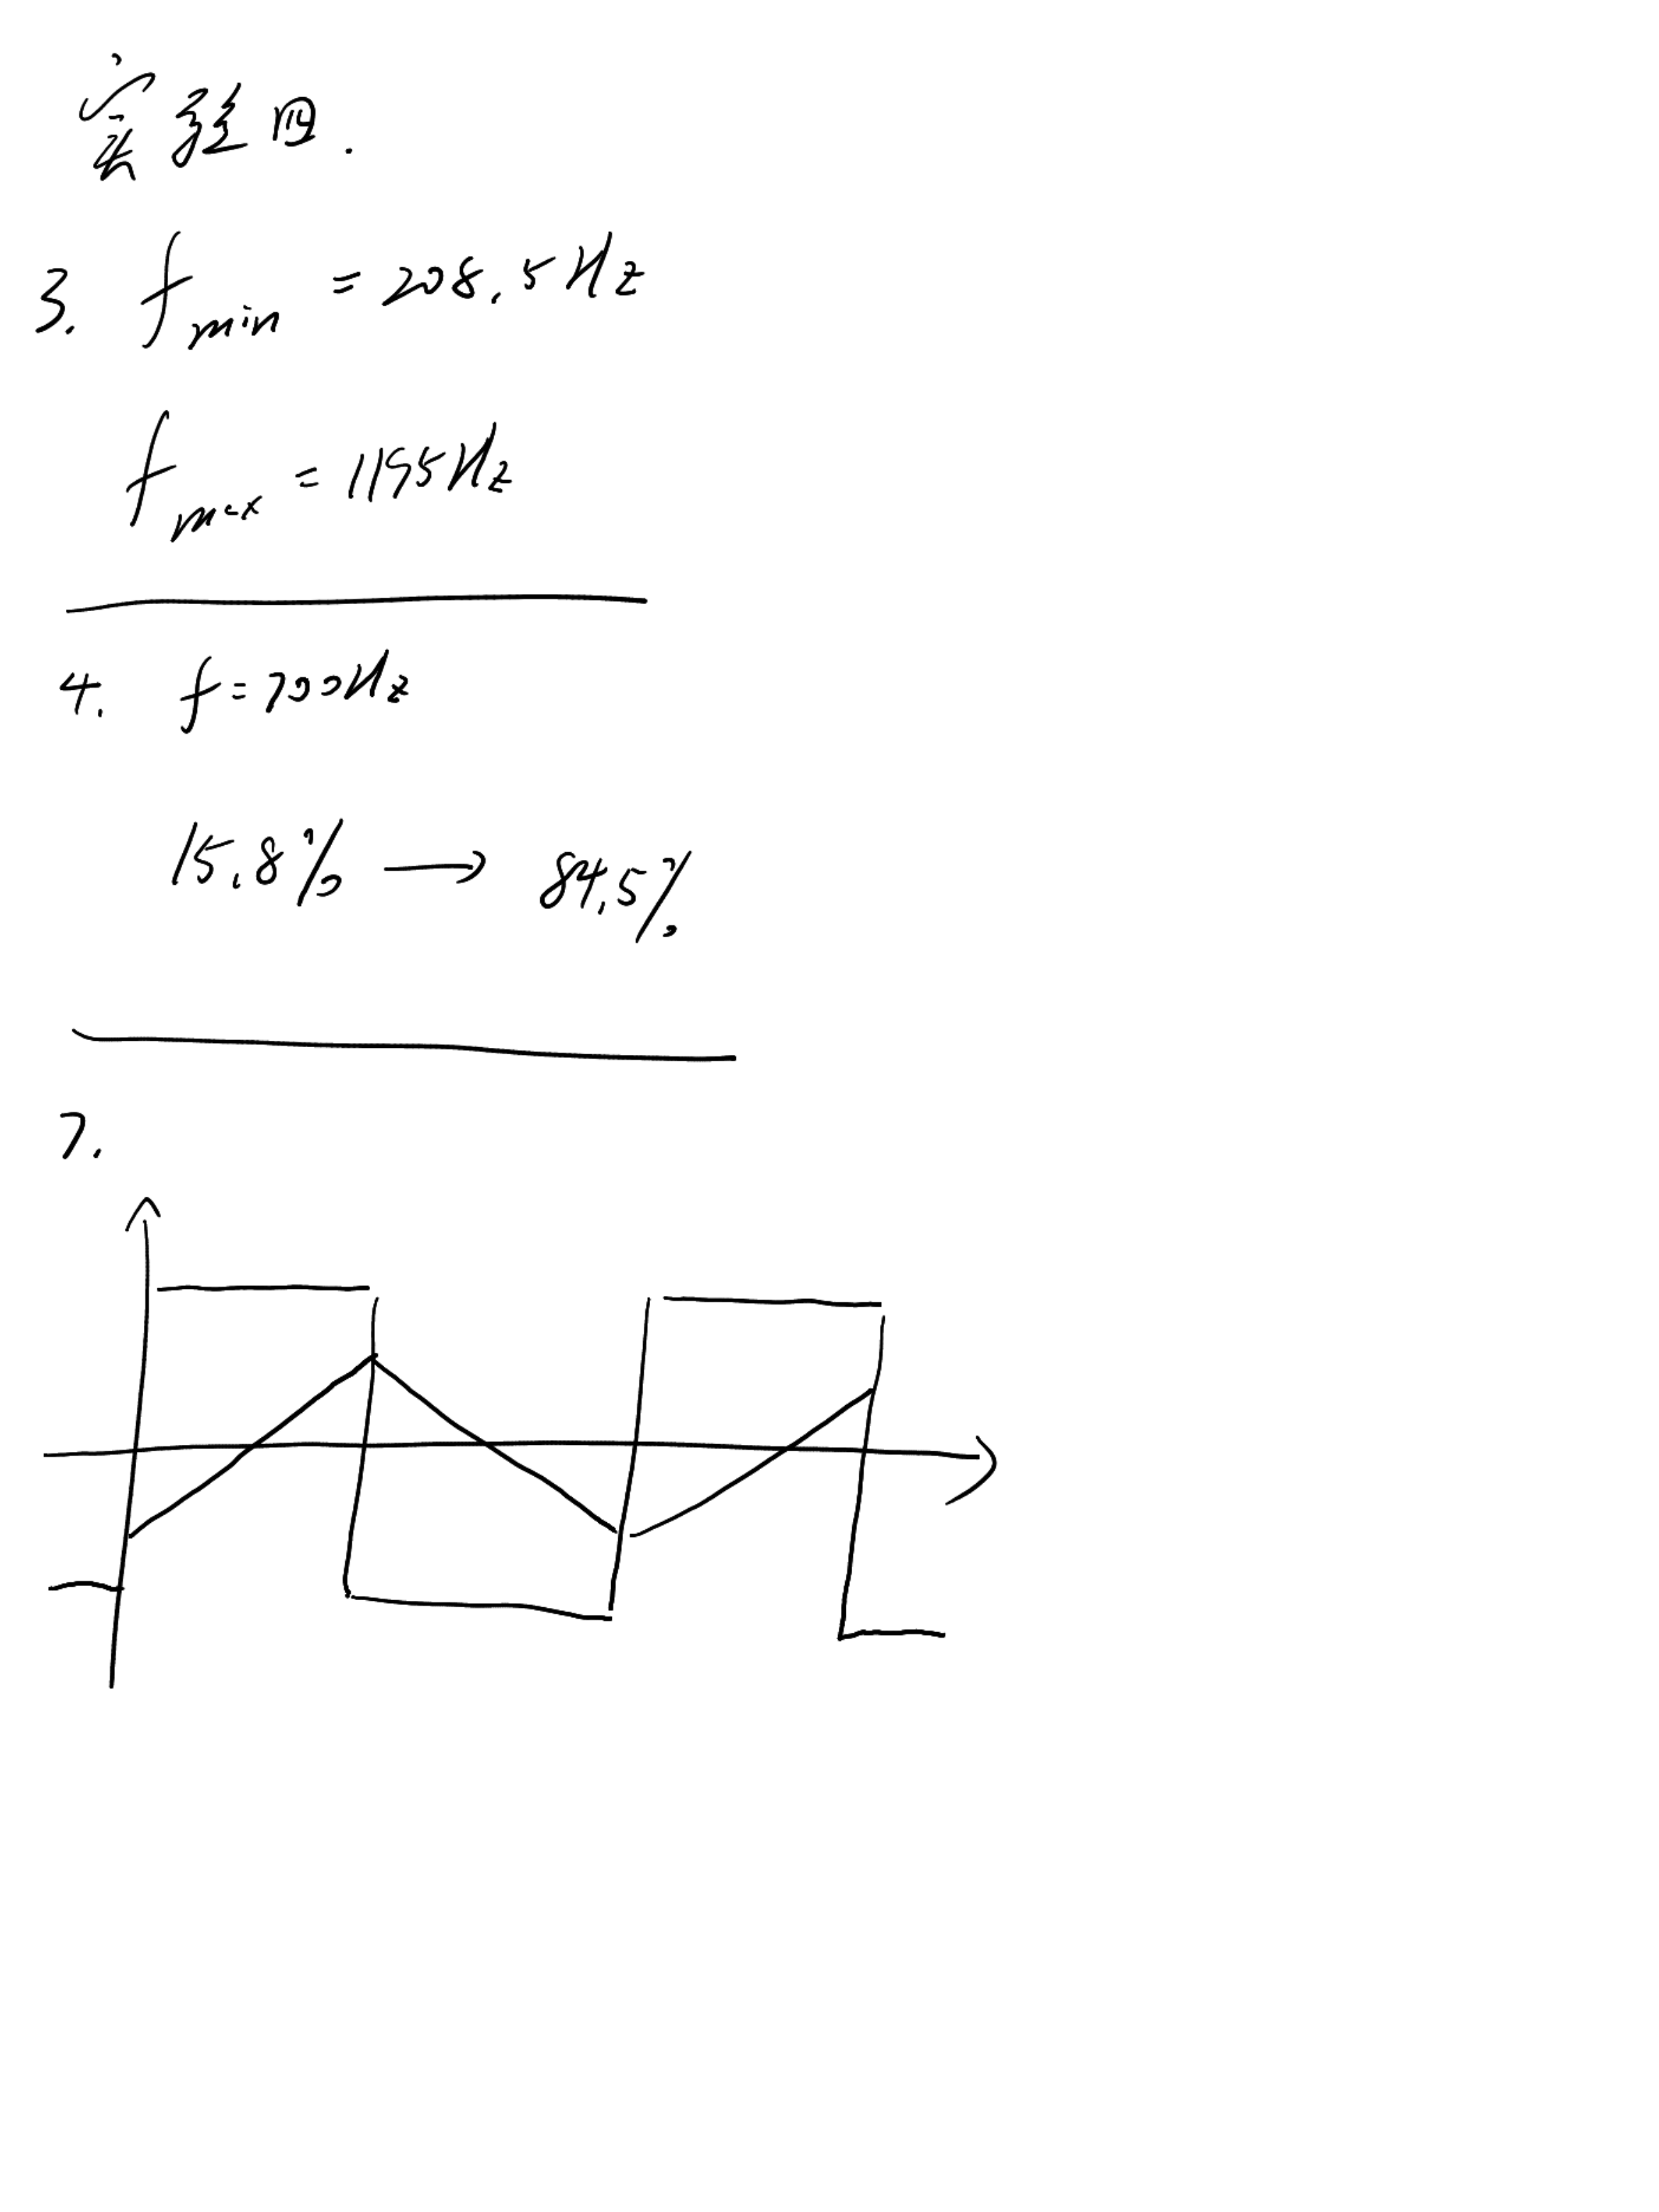 实验四.
3. f min = 208.5Hz
f max = 1195Hz
4. f = 700Hz
15.8% → 84.5%
7.